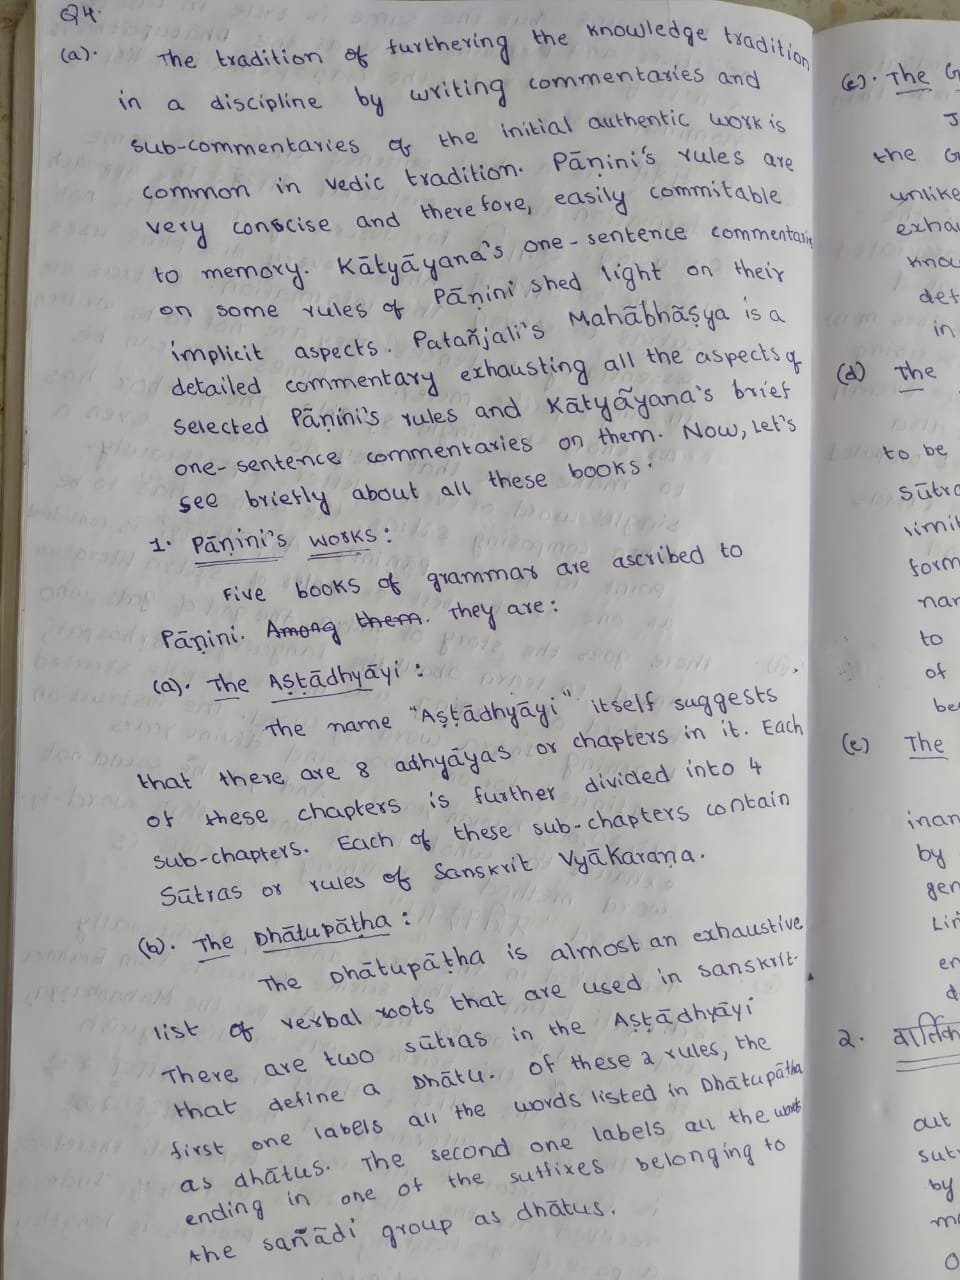 Q4.
(a). The tradition of furthering the knowledge tradition
in a discipline by writing commentaries and
sub-commentaries of the initial authentic work is
common in vedic tradition. Pāṇini's rules are
very conscise and therefore, easily commitable
to memory. Kātyāyana's one-sentence commentaries
on some rules of Pāṇini shed light on their
implicit aspects. Patañjali's Mahābhāṣya is a
detailed commentary exhausting all the aspects of
selected Pāṇini's rules and Kātyāyana's brief
one-sentence commentaries on them. Now, Let's
see briefly about all these books.
1. Pāṇini's works:
Five books of grammar are ascribed to
Pāṇini. Among them. They are:
(a). The Aṣṭādhyāyi:
The name "Aṣṭādhyāyi" itself suggests
that there are 8 adhyāyas or chapters in it. Each
of these chapters is further divided into 4
sub-chapters. Each of these sub-chapters contain
Sūtras or rules of Sanskrit Vyākaraṇa.
(b). The Dhātupāṭha:
The Dhātupāṭha is almost an exhaustive
list of verbal roots that are used in sanskrit.
There are two sūtras in the Aṣṭādhyāyi
that define a Dhātu. Of these 2 rules, the
first one labels all the words listed in Dhātupāṭha
as dhātus. The second one labels all the words
ending in one of the suffixes belonging to
the sañādi group as dhātus.
(c). The G
the G
unlike
in
(d) The
to be
sūtra
to
of
(e) The
by
2. वार्तिक
out
by